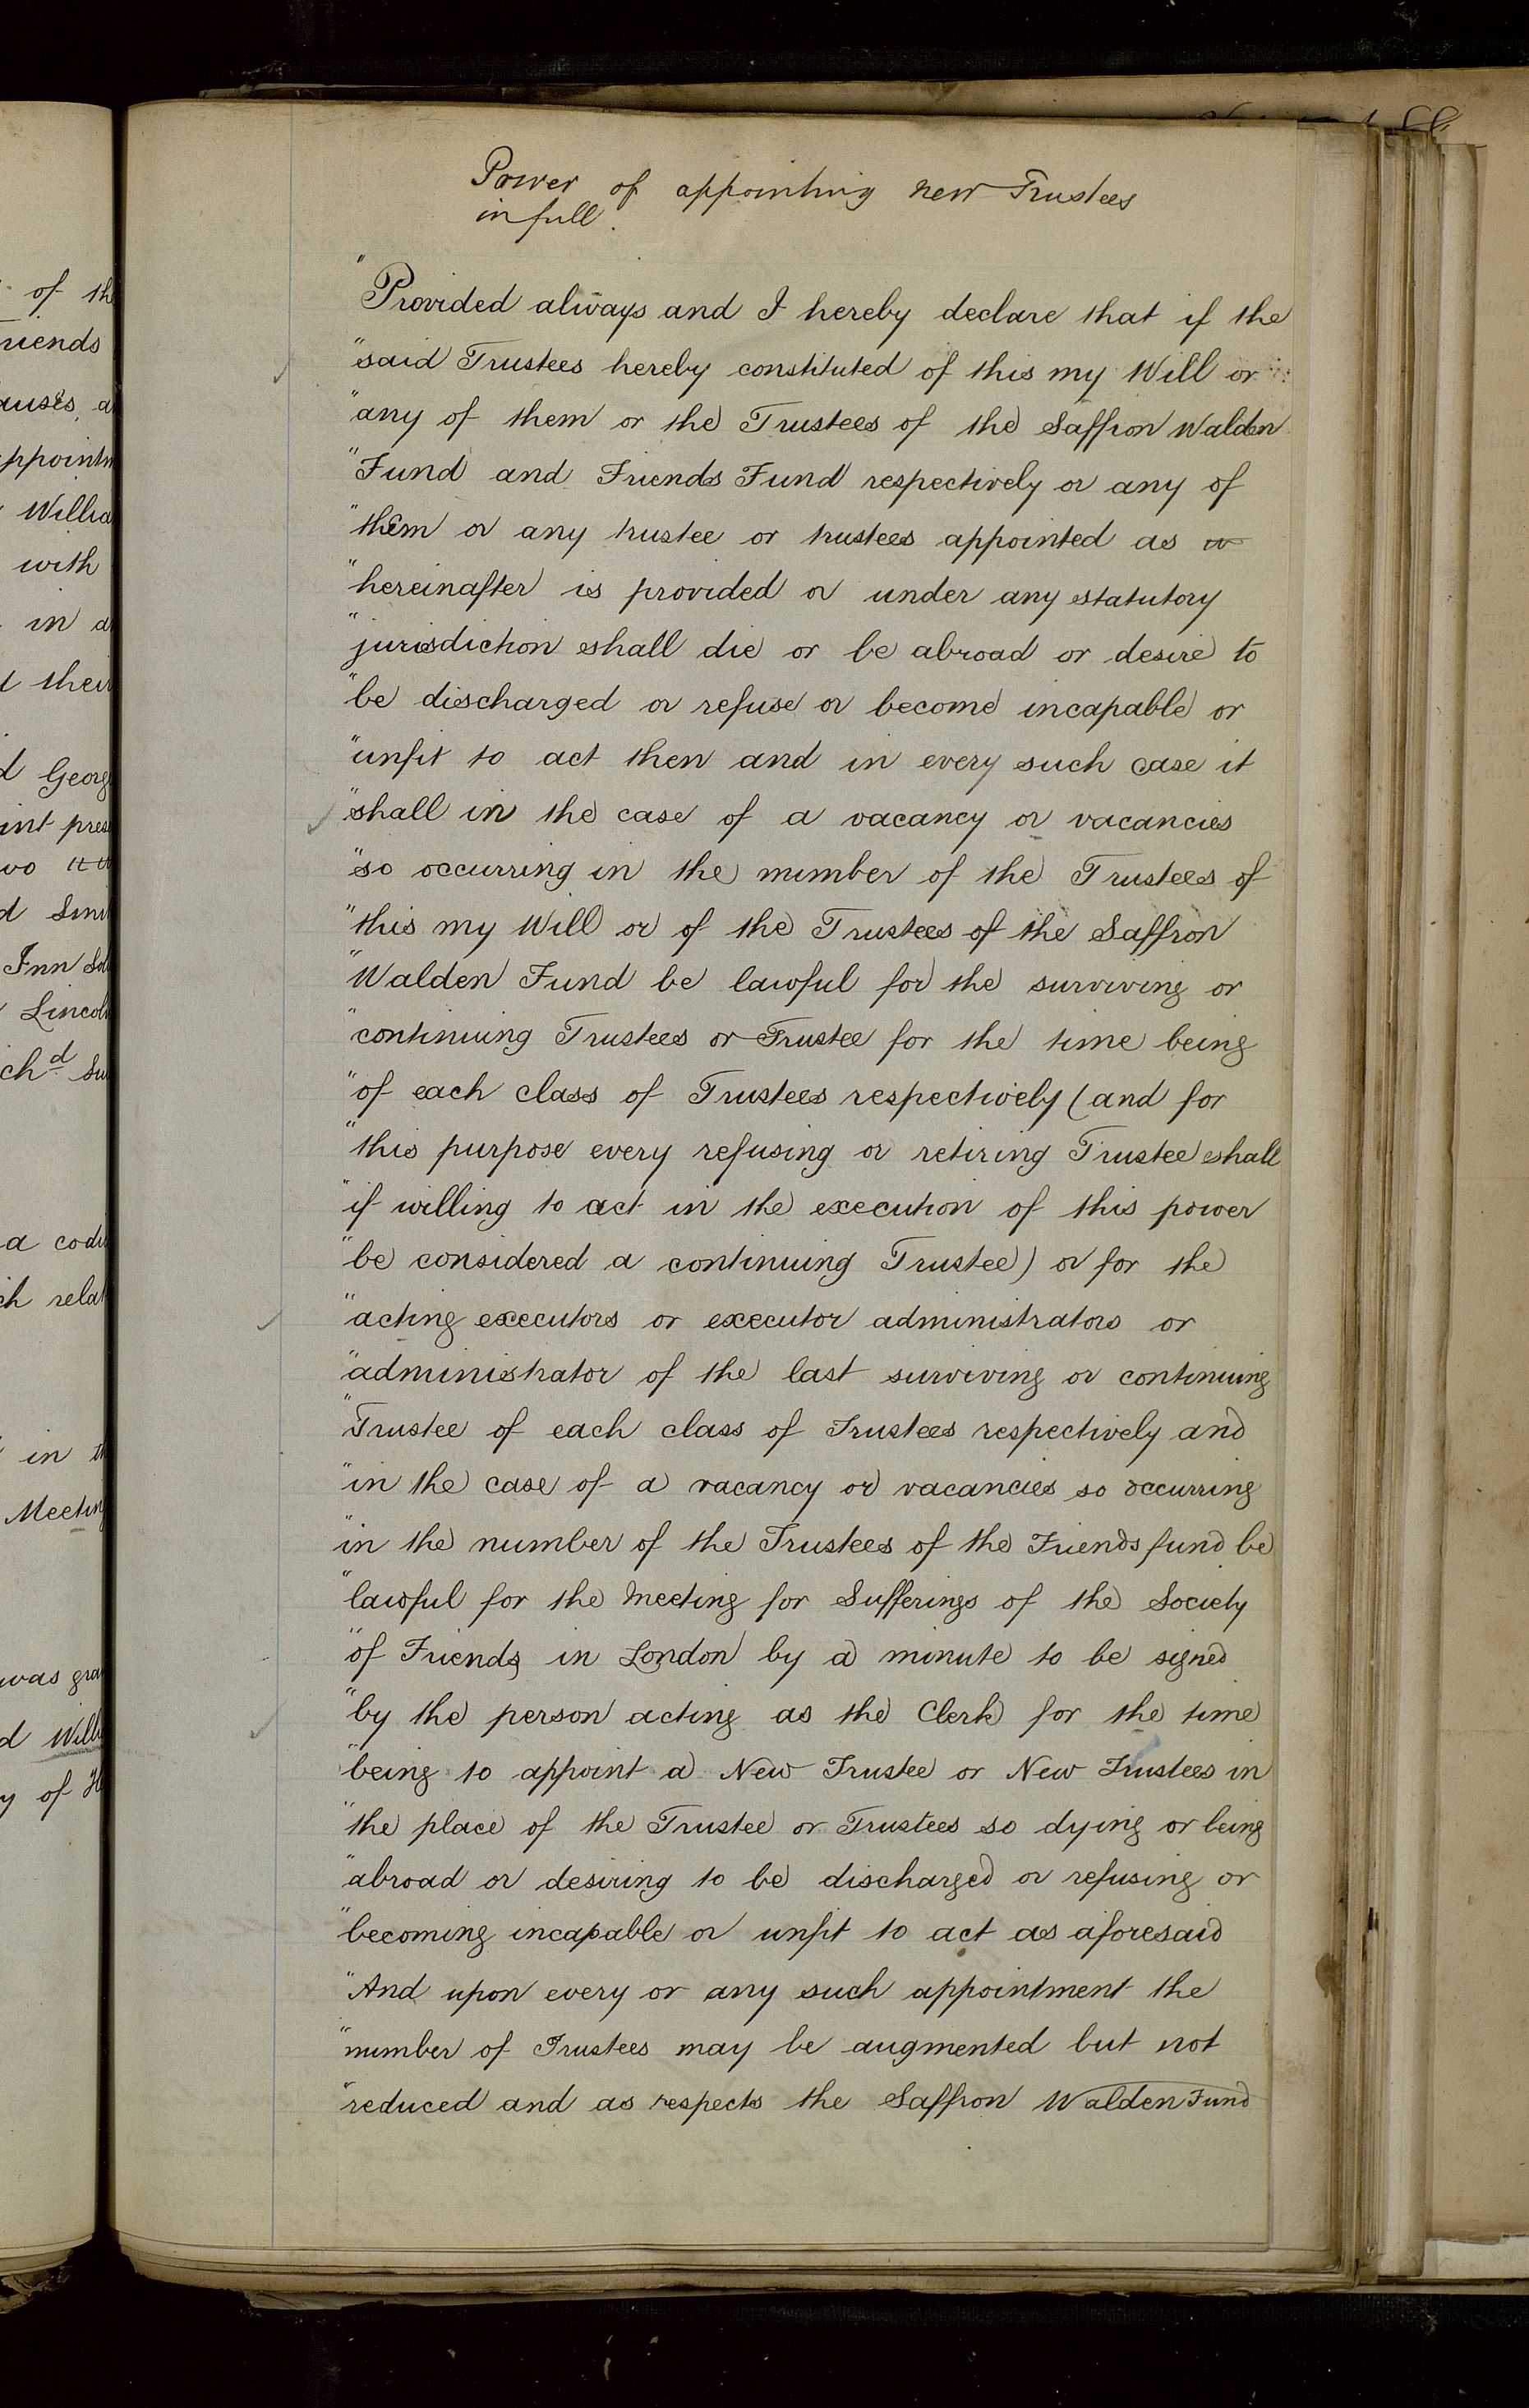 of the
riends
auses, a
ppointm
Willia
with
in a
t their
d Georg
int pres
wo
d Smi
Inn Sol
Lincoln
chd Su
a codi
ch relat
in th
Meeting
was gra
d Willi
y of H
Power of appointing new Trustees
in full.
"Provided always and I hereby declare that if the
"said Trustees hereby constituted of this my Will or
"any of them or the Trustees of the Saffron Walden
"Fund and Friends Fund respectively or any of
"them or any trustee or trustees appointed as
"hereinafter is provided or under any statutory
"jurisdiction shall die or be abroad or desire to
"be discharged or refuse or become incapable or
"unfit to act then and in every such case it
"shall in the case of a vacancy or vacancies
"so occurring in the number of the Trustees of
"this my Will or of the Trustees of the Saffron
"Walden Fund be lawful for the surviving or
"continuing Trustees or Trustee for the time being
"of each class of Trustees respectively (and for
"this purpose every refusing or retiring Trustee shall
"if willing to act in the execution of this power
"be considered a continuing Trustee) or for the
"acting executors or executor administrators or
"administrator of the last surviving or continuing
"Trustee of each class of Trustees respectively and
"in the case of a vacancy or vacancies so occurring
"in the number of the Trustees of the Friends fund be
"lawful for the Meeting for Sufferings of the Society
"of Friends in London by a minute to be signed
"by the person acting as the Clerk for the time
"being to appoint a New Trustee or New Trustees in
"the place of the Trustee or Trustees so dying or being
"abroad or desiring to be discharged or refusing or
"becoming incapable or unfit to act as aforesaid
"And upon every or any such appointment the
"number of Trustees may be augmented but not
"reduced and as respects the Saffron Walden Fund